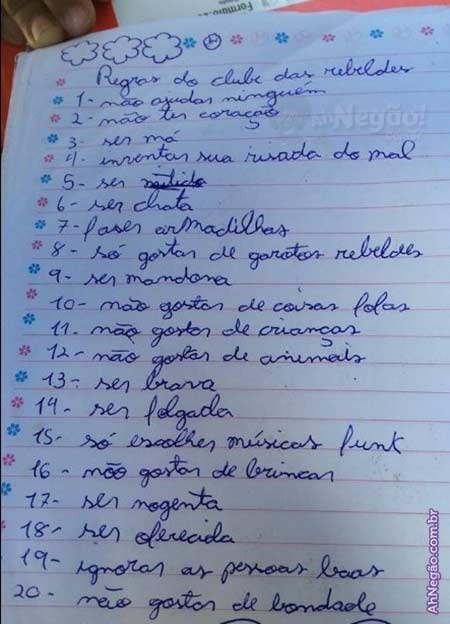 Formulá
Regras do clube das rebeldes
1- não ajudar ninguém
2- não ter coração
3- ser má
4- inventar sua risada do mal
5- ser
6- ser chata
7- faser armadilhas
8- só gostar de garotos rebeldes
9- ser mandona
10- não gostar de coisas fofas
11- não gostar de crianças
12- não gostar de animais
13- ser brava
14- ser folgada
15- só escolher músicas funk
16- não gostar de brincar
17- ser nogenta
18- ser oferecida
19- ignorar as pessoas boas
20- não gostar de bondade
AhNegão!
AhNegão.com.br